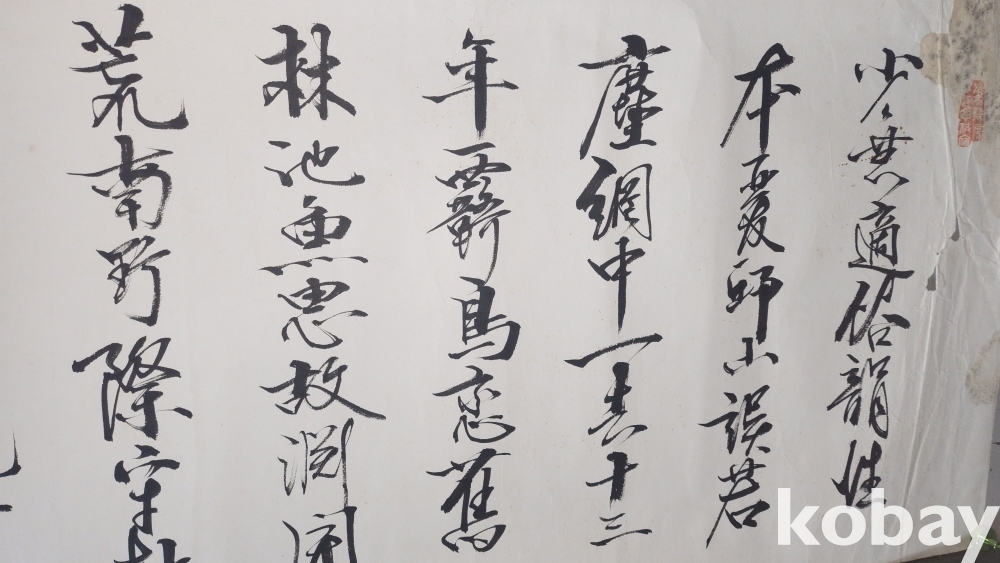 少無適俗韻性
本愛邱山誤落
塵網中一去十三
年覉鳥恋舊
林池魚思故淵開
荒南野際守拙
kobay